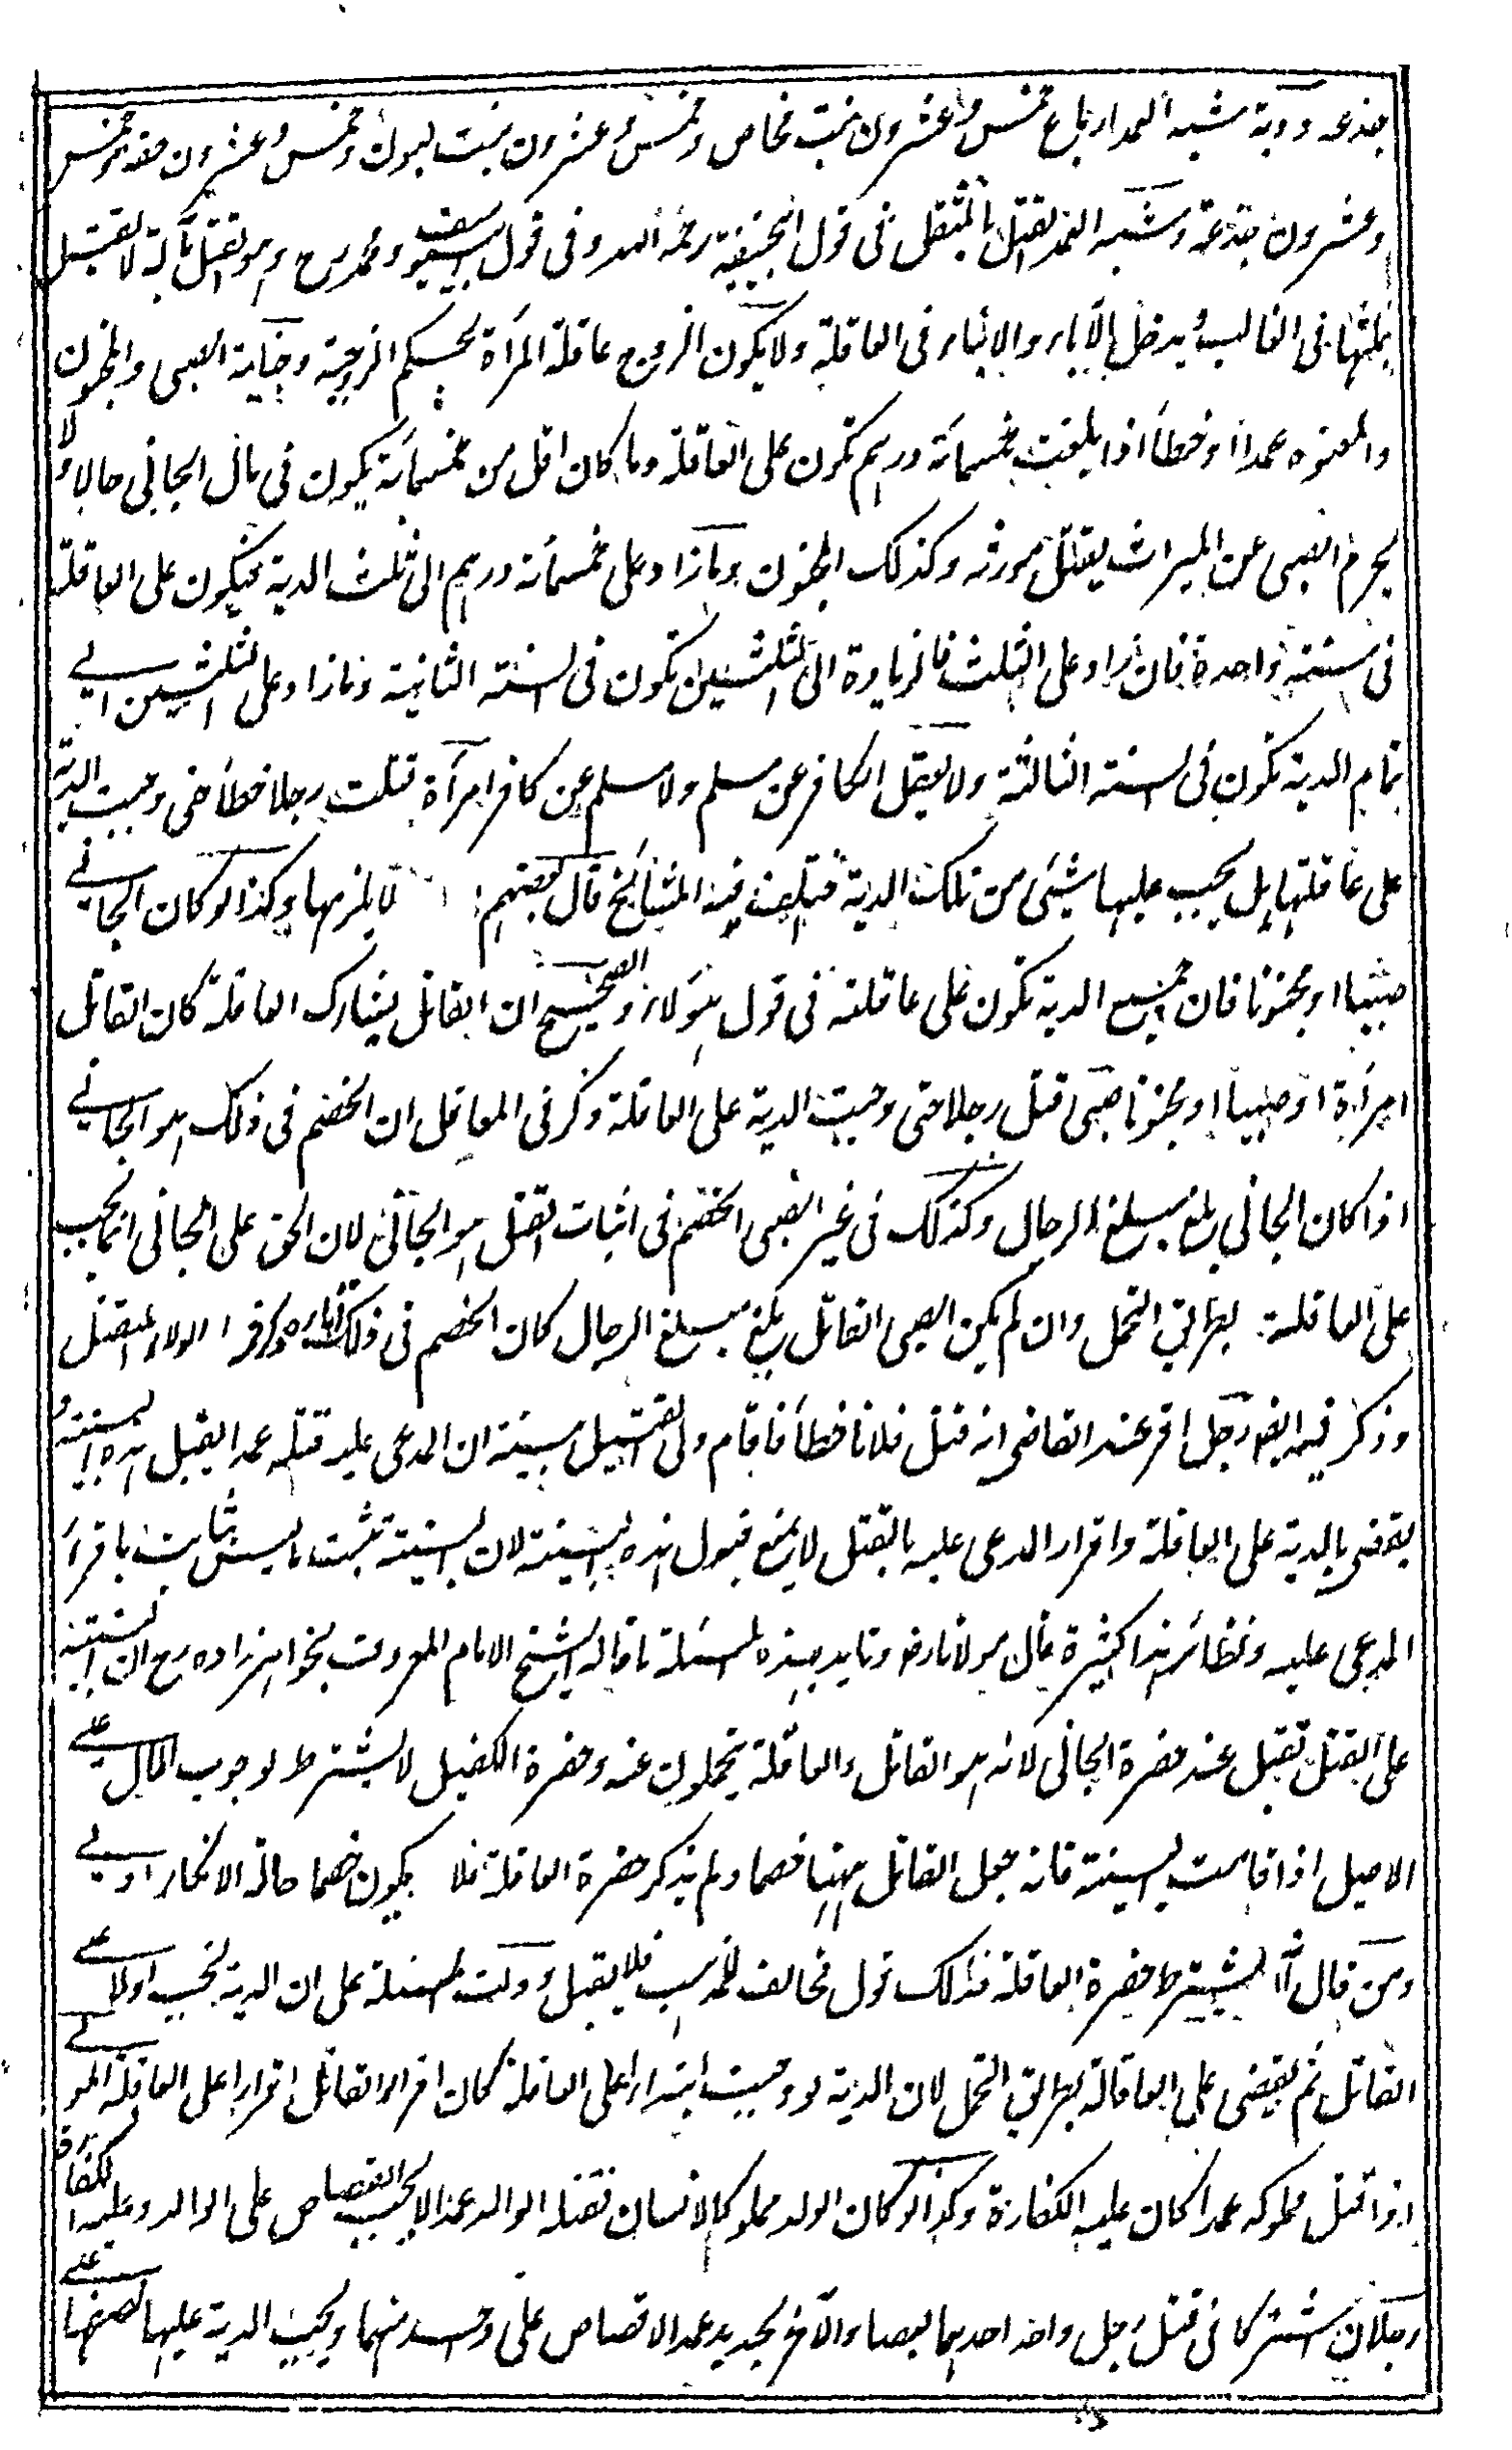 جذعه ودية شبه العمد ارباع خمس وعشرون بنت مخاض وخمس وعشرون بنت لبون وخمس وعشرون حقة وخمس
وعشرون جذعة وشبه العمد القتل بالمثقل في قول ابيحنيفة رحمه الله وفي قول ابي يوسف ومحمد رح هو القتل بآلة لا تقتل
بمثلها في الغالب ويدخل الآباء والابناء في العاقلة ولا يكون الزوج عاقلة المرأة بحكم الزوجية وجناية الصبي والمجنون
والمعتوه عمدا او خطأ اذا بلغت خمسمائة درهم تكون على العاقلة وما كان اقل من خمسمائة يكون في مال الجاني حالا ولا
يحرم الصبي عن الميراث بقتل مورثه وكذلك المجنون وما زاد على خمسمائة درهم الى ثلث الدية فيكون على العاقلة
في سنة واحدة فان زاد على الثلث فالزيادة الى الثلثين تكون في السنة الثانية وما زاد على الثلثين الى
تمام الدية تكون في السنة الثالثة ولا يعقل الكافر عن مسلم ولا مسلم عن كافر امرأة قتلت رجلا خطأ حتى وجبت الدية
على عاقلتها هل يجب عليها شيئ من تلك الدية اختلف فيه المشايخ قال بعضهم لا يلزمها وكذا لو كان الجاني
صبيا او مجنونا فان جميع الدية تكون على عاقلته في قول هؤلاء والصحيح ان القاتل يشارك العاقلة كان القاتل
امرأة او صبيا او مجنونا صبي قتل رجلا حتى وجبت الدية على العاقلة ذكر في المعاقل ان الخصم في ذلك هو الجاني
اذا كان الجاني بلغ مبلغ الرجال وكذلك في غير الصبي الخصم في اثبات القتل هو الجاني لان الحق على الجاني انما يجب
على العاقلة بطريق التحمل وان لم يكن الصبي القاتل بلغ مبلغ الرجال كان الخصم في ذلك اباه وذكر في الولاء القتل
وذكر فيه ايضا رجل اقر عند القاضي انه قتل فلانا خطأ فاقام ولي القتيل بينة ان المدعى عليه قتله عمدا يقبل هذه البينة و
يقضى بالدية على العاقلة واقرار المدعى عليه بالقتل لا يمنع قبول هذه البينة لان البينة تثبت ما ليس بثابت باقرار
المدعى عليه ونظائر هذا كثيرة قال مولانا رض وتايد بهذه المسئلة ما قاله الشيخ الامام المعروف بخواهرزاده رح ان البينة
على القتل تقبل عند حضرة الجاني لانه هو القاتل والعاقلة يتحملون عنه وحضرة الكفيل لا يشترط لوجوب المال على
الاصيل اذا قامت البينة فانه جعل القاتل ههنا خصما ولم يذكر حضرة العاقلة فلا يكون خصما حالة الانكار اولى
ومن قال انه يشترط حضرة العاقلة فذلك قول مخالف للمذهب فلا يقبل ودلت المسئلة على ان الدية تجب اولا على
القاتل ثم يقضى على العاقلة بطريق التحمل لان الدية لو وجبت ابتداء على العاقلة كان اقرار القاتل اقرارا على العاقلة المولى
اذا قتل مملوكه عمدا كان عليه الكفارة وكذا لو كان الولد مملوكا لانسان فقتله الوالد عمدا لا يجب القصاص على الوالد وعليه الكفارة
رجلان اشتركا في قتل رجل واحد احدهما بعصا والآخر بحديد عمدا لا قصاص على واحد منهما ويجب الدية عليهما نصفها على